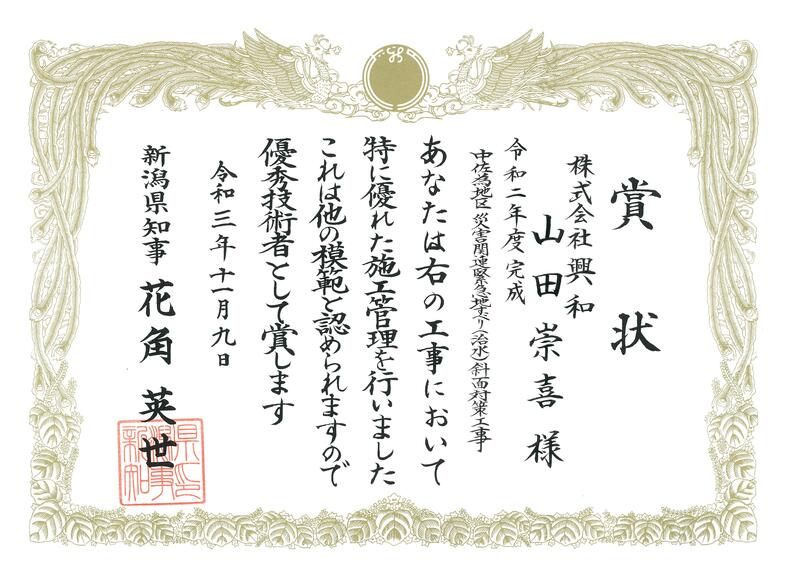 賞状
株式会社興和
山田崇喜様
令和二年度完成
中佐為地区災害関連緊急地すべり(治水)斜面対策工事
あなたは右の工事において
特に優れた施工管理を行いました
これは他の模範と認められますので
優秀技術者として賞します
令和三年十一月九日
新潟県知事 花角英世
新潟県知事印